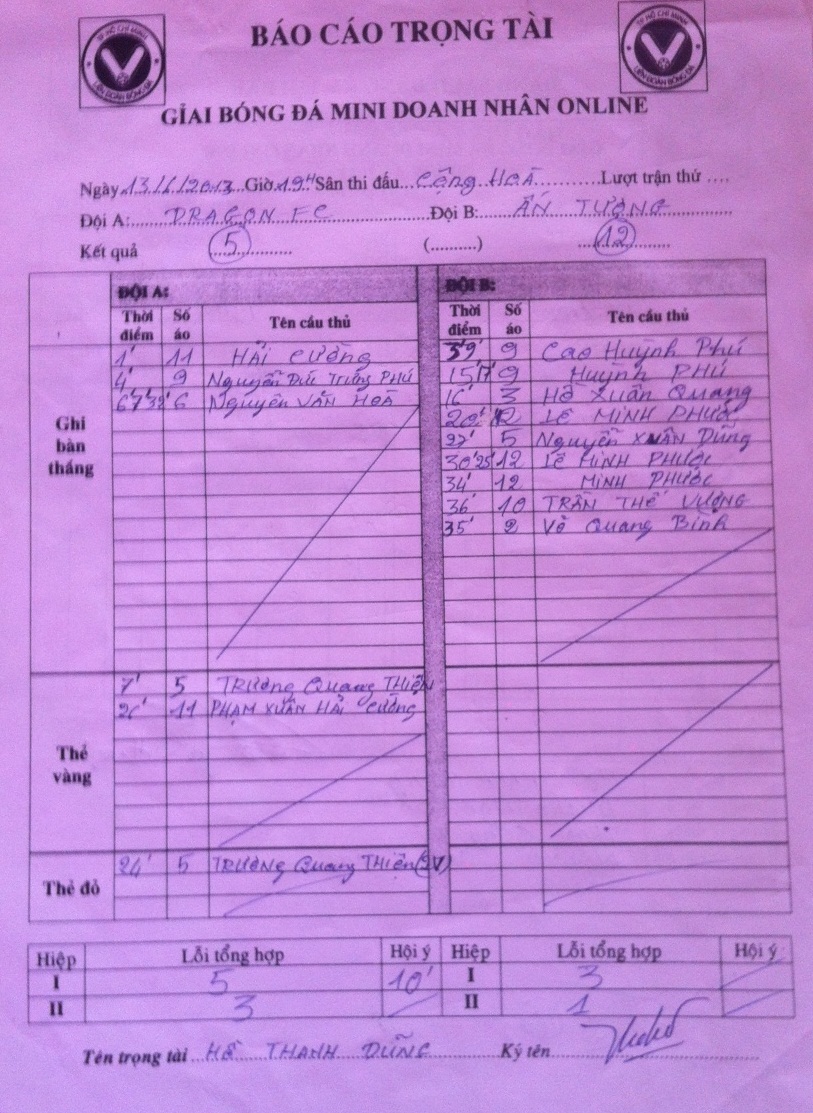 TP HỒ CHÍ MINH
LIÊN ĐOÀN BÓNG ĐÁ
BÁO CÁO TRỌNG TÀI
TP HỒ CHÍ MINH
LIÊN ĐOÀN BÓNG ĐÁ
GIẢI BÓNG ĐÁ MINI DOANH NHÂN ONLINE
Ngày 13/6/2013 Giờ 19H Sân thi đấu Cộng HoÀ Lượt trận thứ ....
Đội A: DRAGON FC Đội B: ẤN TƯỢNG
Kết quả 5 (..........) 12
ĐỘI A: ĐỘI B:
Thời điểm Số áo Tên cầu thủ Thời điểm Số áo Tên cầu thủ
Ghi bàn thắng
1' 11 HẢi CƯỜng 9 Cao Huỳnh Phú
4' 9 Nguyễn Đức Trường PHÚ 15'17' 9 Huỳnh PHÚ
6 Nguyễn VĂN HOÀ 16' 3 Hồ Xuân Quang
20' 12 LÊ MINH PHƯỚC
27' 5 Nguyễn XUÂN Dũng
30'25' 12 LÊ MINH PHƯỚC
34' 12 MINH PHƯỚC
36' 10 TRẦN THẾ VƯƠNG
35' 2 Võ Quang Bình
Thẻ vàng
7' 5 TRƯơng Quang THIỆN
11 PHẠM XUÂN HẢI CƯỜng
Thẻ đỏ
24' 5 TRƯơNg Quang THiện (2V)
Hiệp Lỗi tổng hợp Hội ý Hiệp Lỗi tổng hợp Hội ý
I 5 10' I 3
II 3 II 1
Tên trọng tài HỒ THANH DŨNG Ký tên